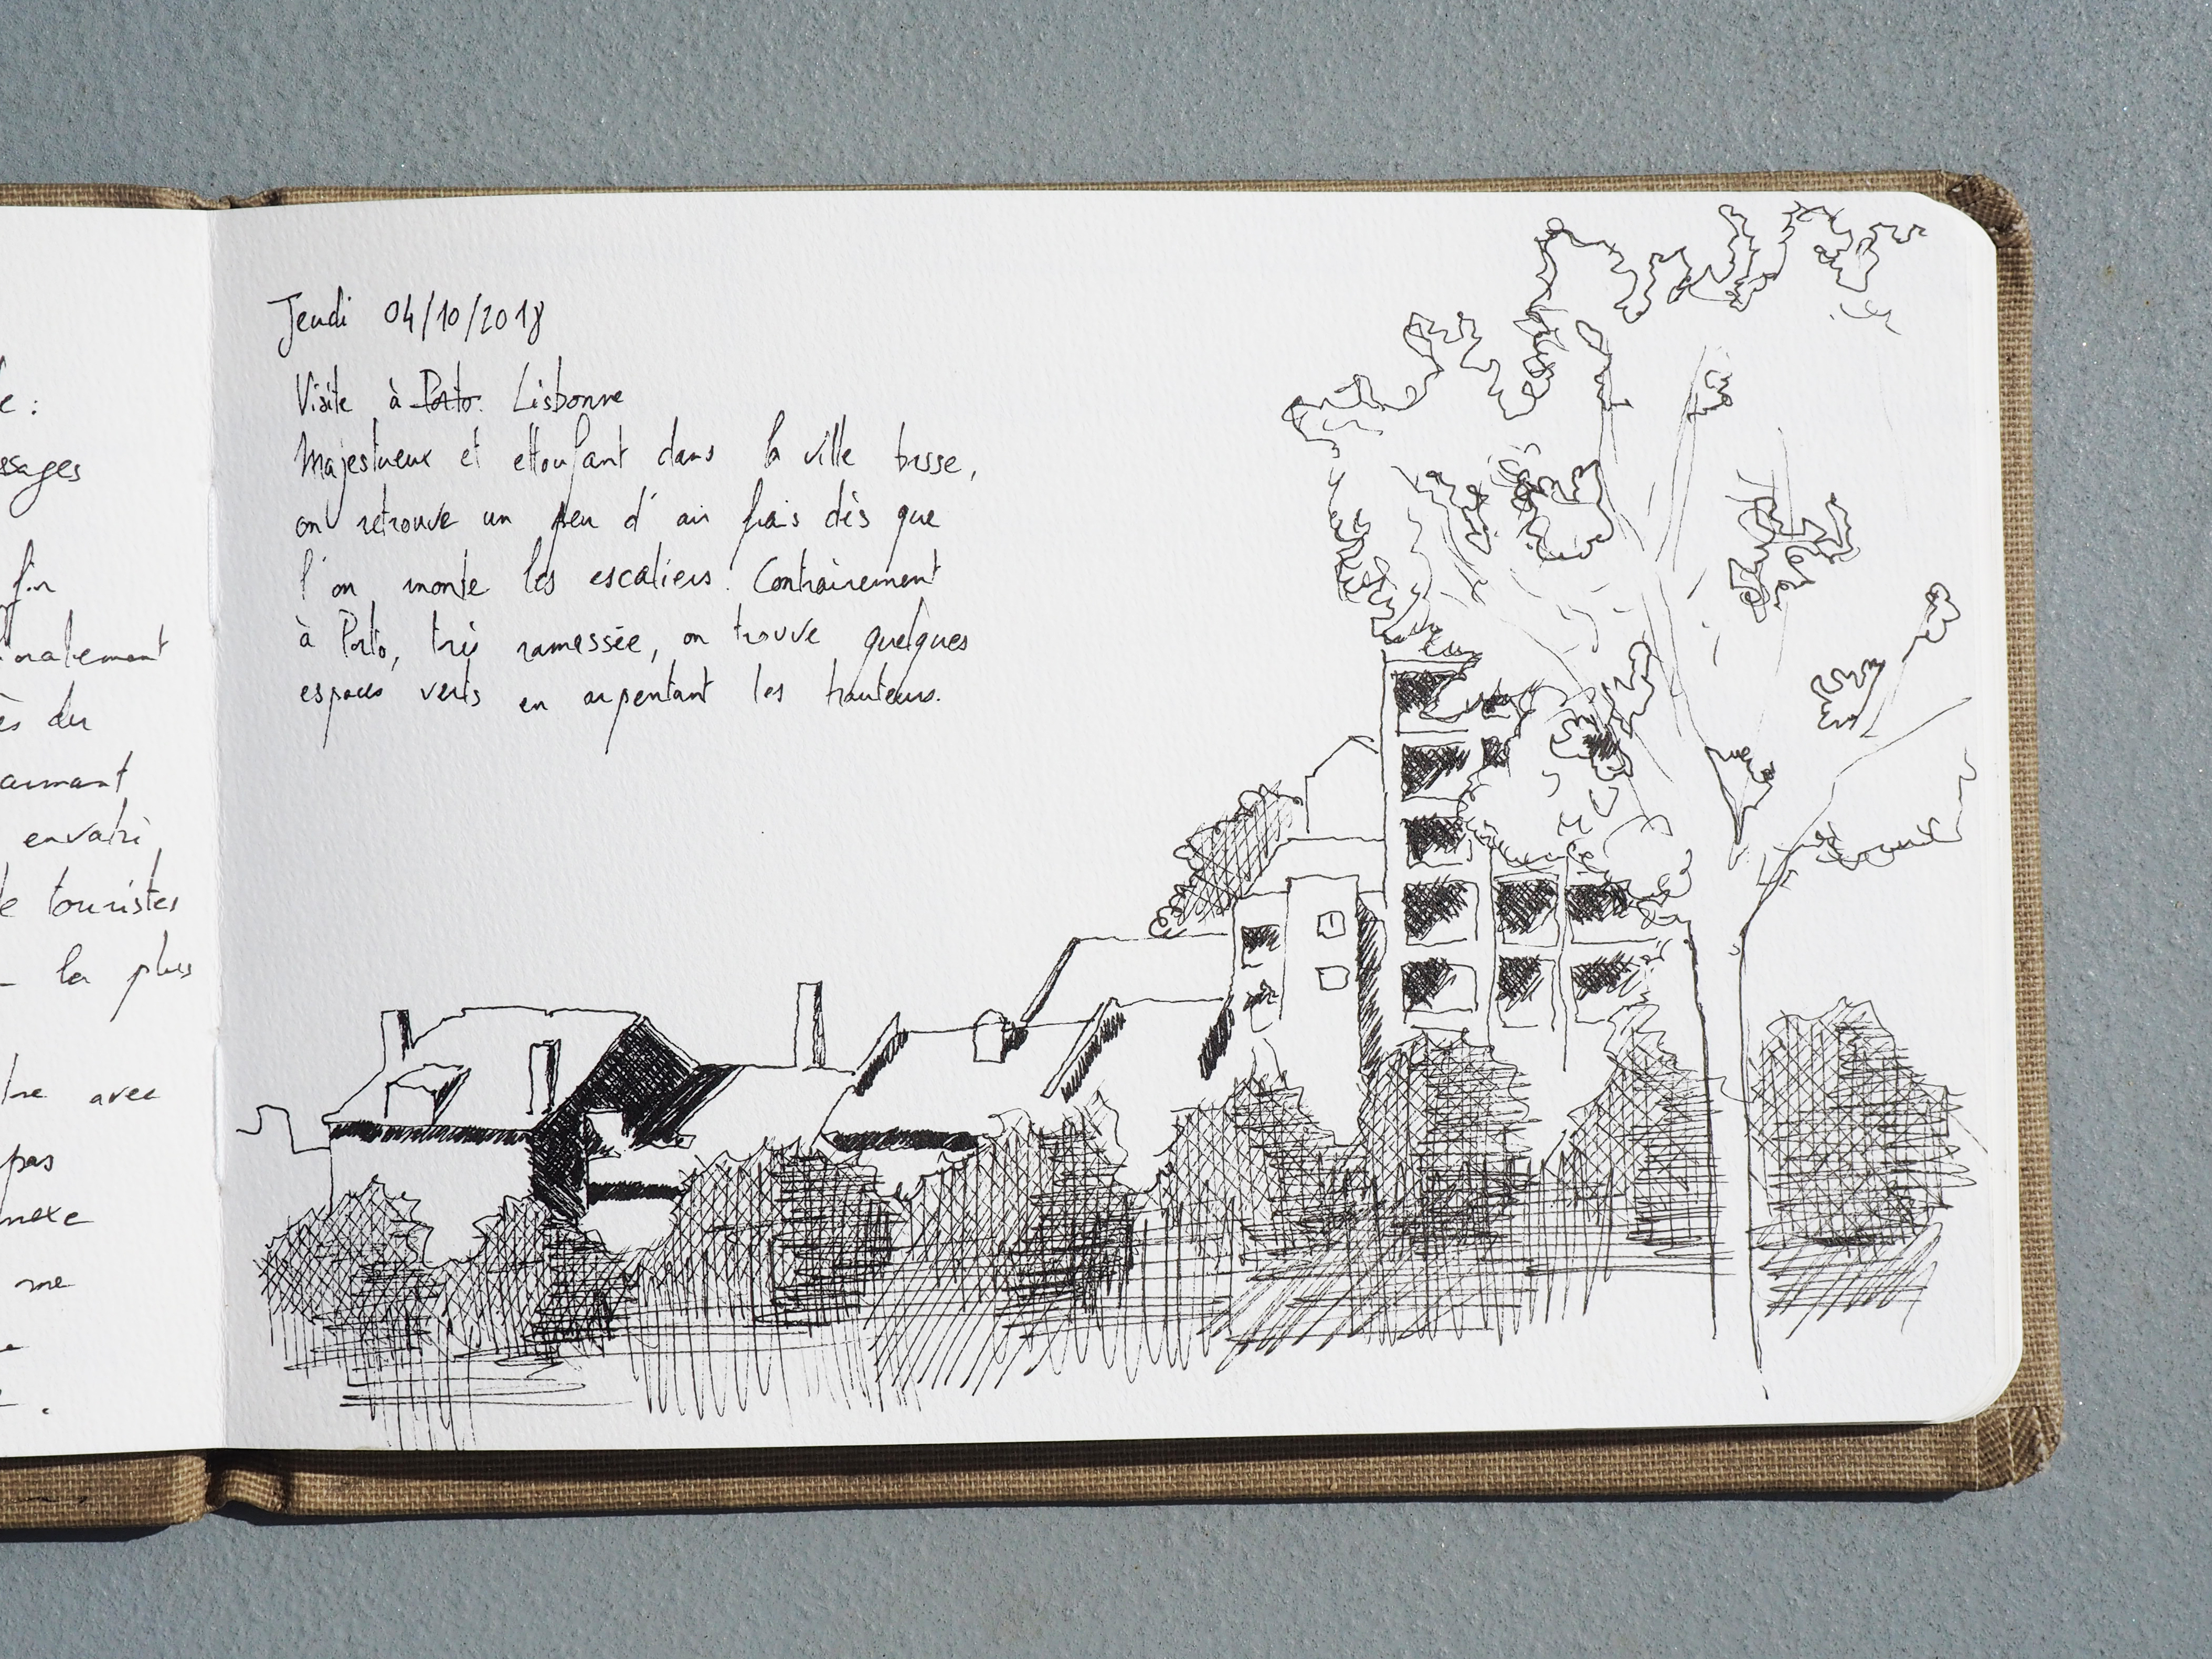 e :
ssages
fin
oralement
ès du
armant
envahi
de touristes
la plus
avec
pas
nexe
me
Jeudi 04/10/2018
Visite à Porto. Lisbonne
Majestueux et ettoufant dans la ville basse,
on retrouve un peu d'air frais dès que
l'on monte les escaliers. Contrairement
à Porto, très ramassée, on trouve quelques
espaces verts en arpentant les hauteurs.